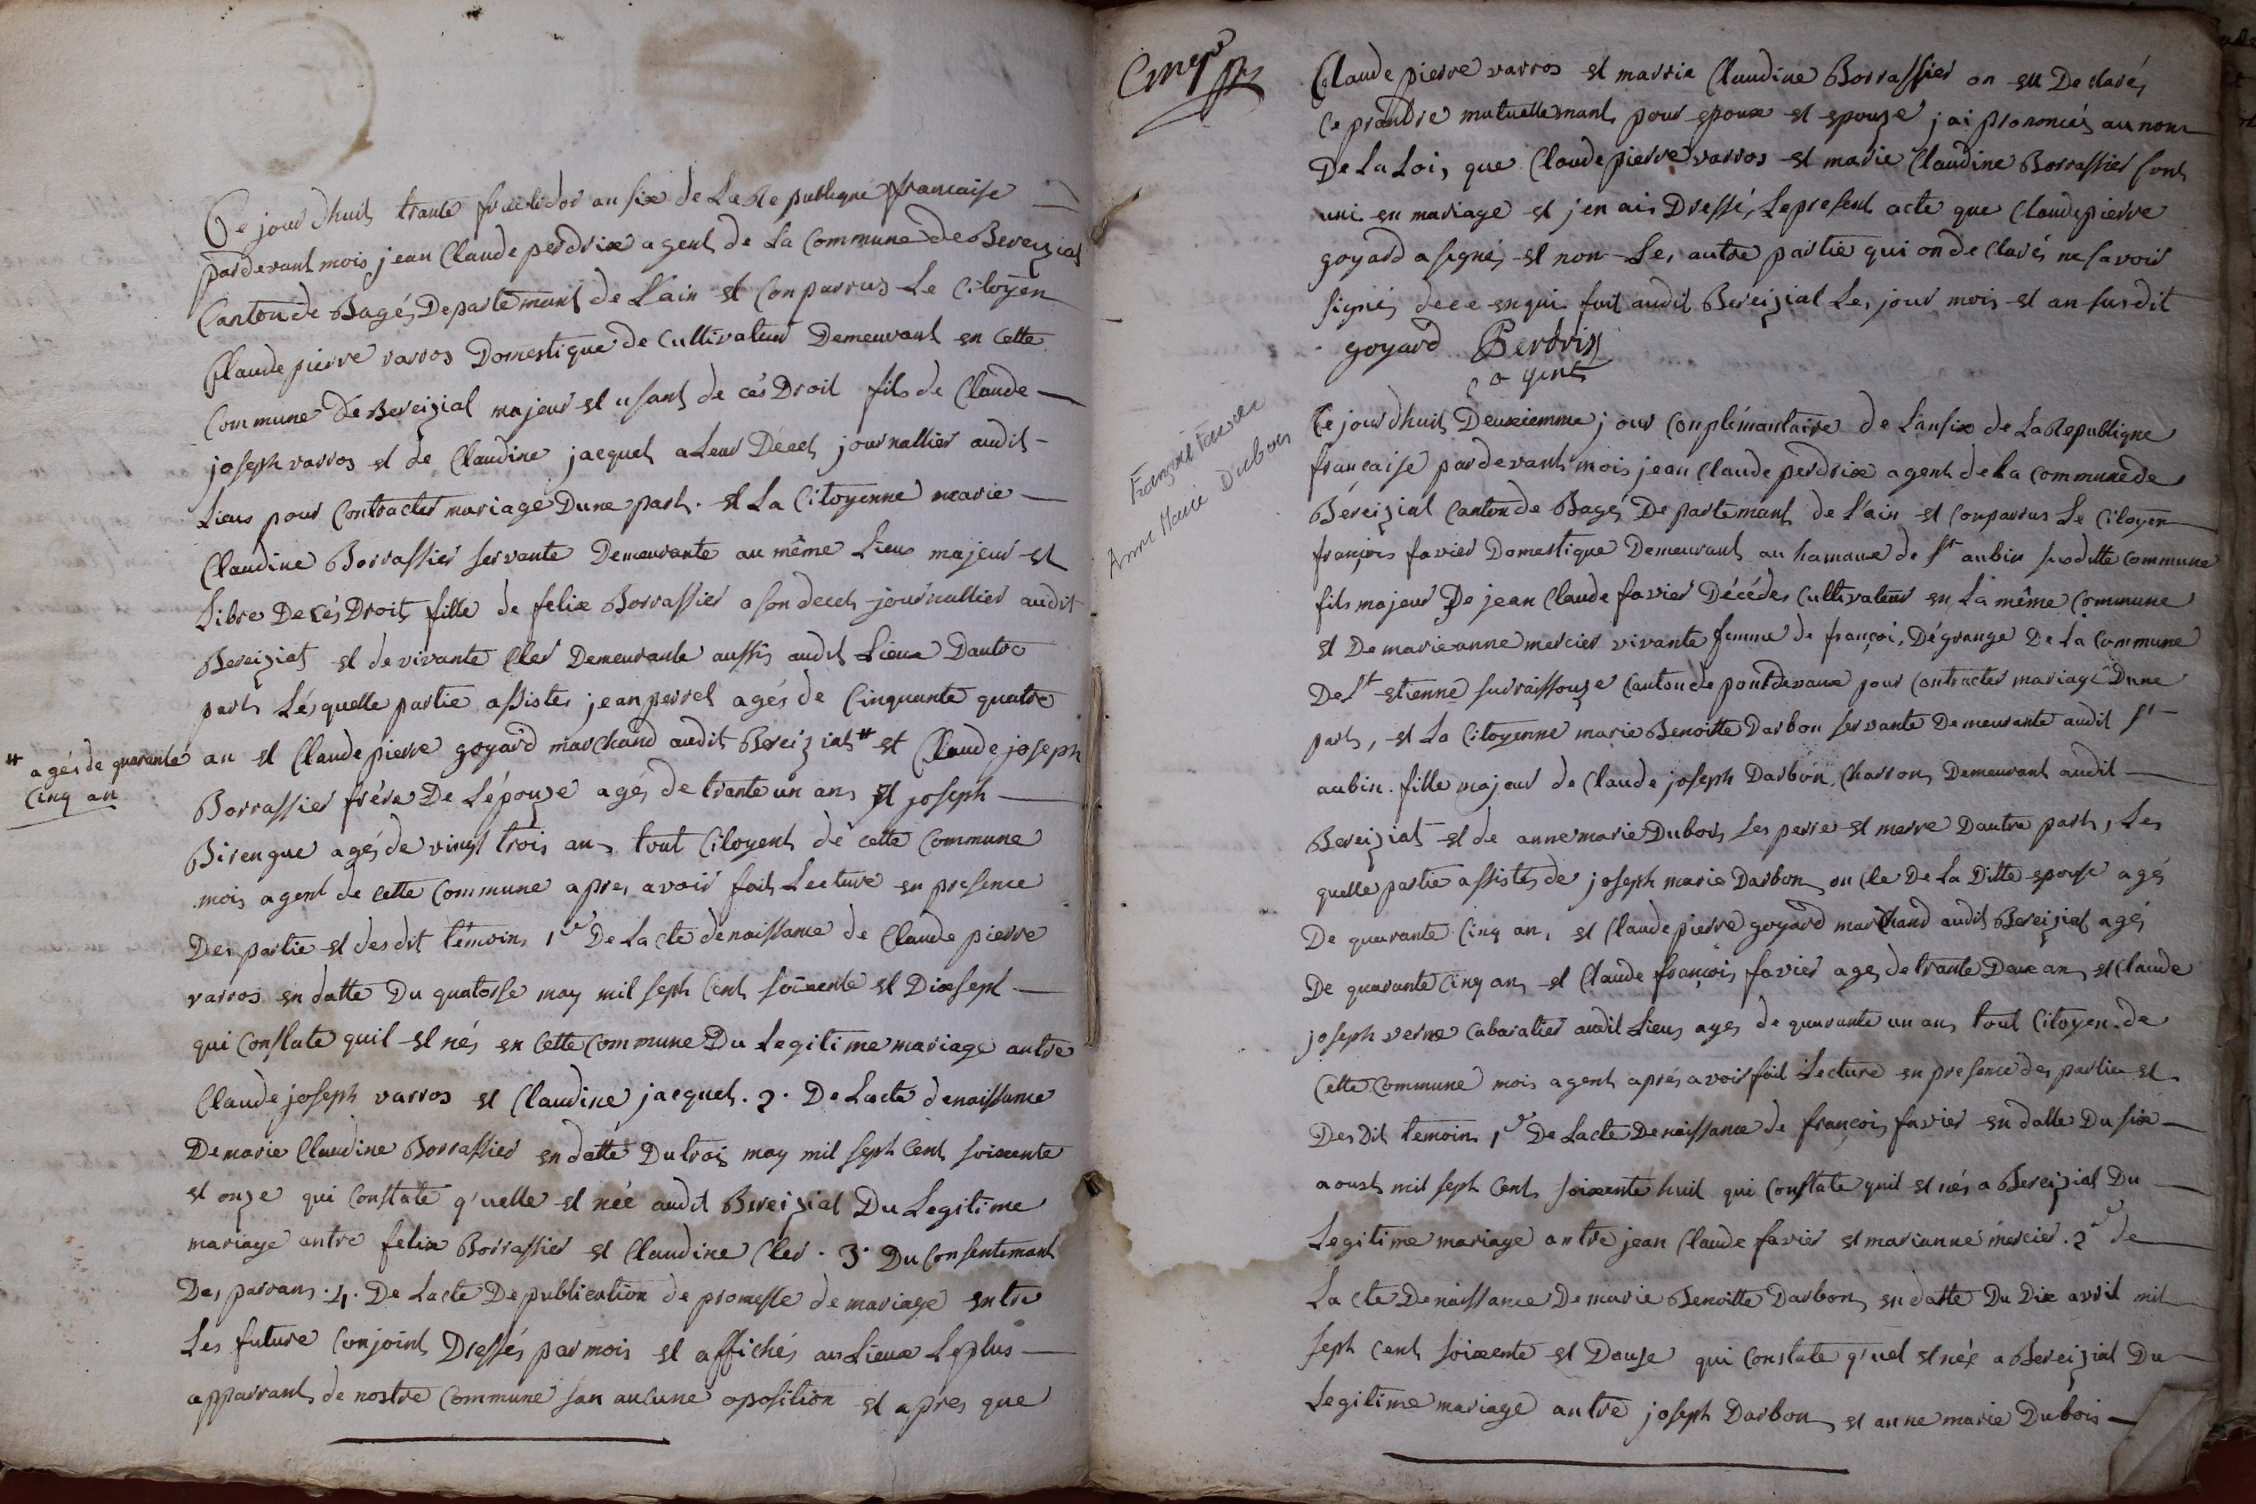 Ce jour dhuit trante fructidor an six de La Republique francaise
pardevant mois jean Claude perdrix agent de La Commune de Bereiziat
Canton de Bagé, Departemant de Lain et Conparrus Le Citoyen
Claude pierre varros Domestique de Cultivateur Demeurant en Cette
Commune de Bereizial majeur et usant de cés Droit fils de Claude
joseph varros et de Claudine jacquet a Leur Décet journallier audit
Lieus pour Contracter mariage Dune part. et La Citoyenne marie
Claudine Borrassier servante Demeurante au même Lieus majeur et
Libre De cés Droit fille de felix Borrassier a son decet journallier audit
Bereiziat et de vivante Cler Demeurante aussis audit Lieux Dautre
part Lésquelle partie assistes jean perret agés de Cinquante quatre
# agés de quarante
Cinq an
an et Claude pierre goyard marchand audit Bereiziat # et Claude joseph
Borrassier frére De Lépouze agés de trante un ans et joseph
Birengue agés de vingt trois ans tout Citoyent de cette Commune
mois agent de cette Commune apres avoir fait Lecture en presence
Des partie et desdit témoins 1er De Lacte denaissance de Claude pierre
varros en datte Du quatorse may mil seph Cent soixente et Dixsept
qui Constate quil et nés en Cette Commune Du Legitime mariage antre
Claude joseph varros et Claudine jacquet. 2. De Lacte denaissance
De marie Claudine Borrassier en datte Du trois may mil seph Cent soixente
et onze qui Constate q'uelle et née audit Bereizial Du Legitime
mariage antre felix Borrassier et Claudine Cler. 3. Du Consentemant
Des parrans. 4. De Lacte De publication de promesse de mariage entre
Les future Conjoint Dressés par mois et affichés au Lieux Leplus
apparrant de nostre Commune san aucune oposition et apres que
Claude pierre varros et marrie Claudine Borrassier on eu Declarés
Ce prandre mutuellemant pour epoux et epouze j'ai prononcés au nom
De La Loi, que Claude pierre varros et marie Claudine Borrassier sont
uni en mariage et j'en ais Dressé, Lepresent acte que Claude pierre
goyard a signés et non Les autre partie qui on de Clarés ne savoir
signés dece enqui fait audit Bereizial Les jour mois et an susdit
goyard Perdrix
agent
Anne Marie Dubois
Ce jour dhuit Deuxiemme jour Conplémantaire de Lansix de La Republique
francaise pardevant mois jean Claude perdrix agent de La Commune de
Béreizial Canton de Bagé, Departemant de Lain et Conparrus Le Citoyen
françois favier Domestique Demeurant au hamaux de St aubin susditte Commune
fils majeur De jean Claude favier Décédés Cultivateur en La même Commune
et De marieanne mercier vivante femme de françois Dégrange De La Commune
De St etienne surraissouze Canton de pontdevaux pour Contracter mariage Dune
part, et La Citoyenne marie Benoitte Darbon servante Demeurante audit St
aubin. fille majeur de Claude joseph Darbon Charron Demeurant audit
Bereiziat et de anne marie Dubois Les perre et merre Dautre part, Les
quelle partie assistés de joseph marie Darbon oncle De La Ditte epouse agés
De quarante Cinq an, et Claude pierre goyard marchand audit Bereizial agés
De quarante Cinq an, et Claude françois favier agés de trante Deux an, et Claude
joseph verne Cabaratier audit Lieus agés de quarante un ans tout Citoyen de
Cette Commune mois agent aprés avoir fait Lecture en presence des partie et
Des Dit témoins 1er De Lacte Denaissance de françois favier en datte Du six
aoust mil seph Cent soixente huit qui Constate quil et nés a Bereizial Du
Legitime mariage antre jean Claude favier et marianne mércier. 2e de
La cte Denaissance De marie Benoitte Darbon en datte Du Dix avril mil
seph Cent soixente et Douse qui Constate q'uel et née a Bereizial Du
Legitime mariage antre joseph Darbon et anne marie Dubois